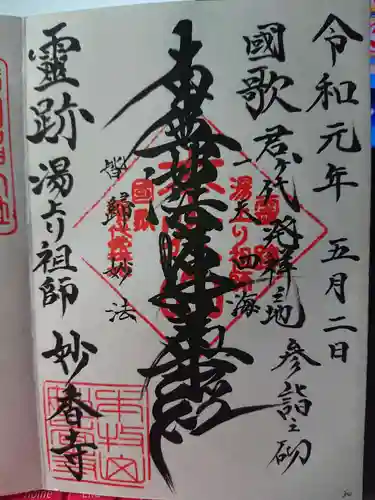 令和元年 五月二日
國歌 君が代発祥之地 参詣之砌
一天四海
南無妙法蓮華経
皆歸妙法
靈跡 湯より祖師 妙香寺